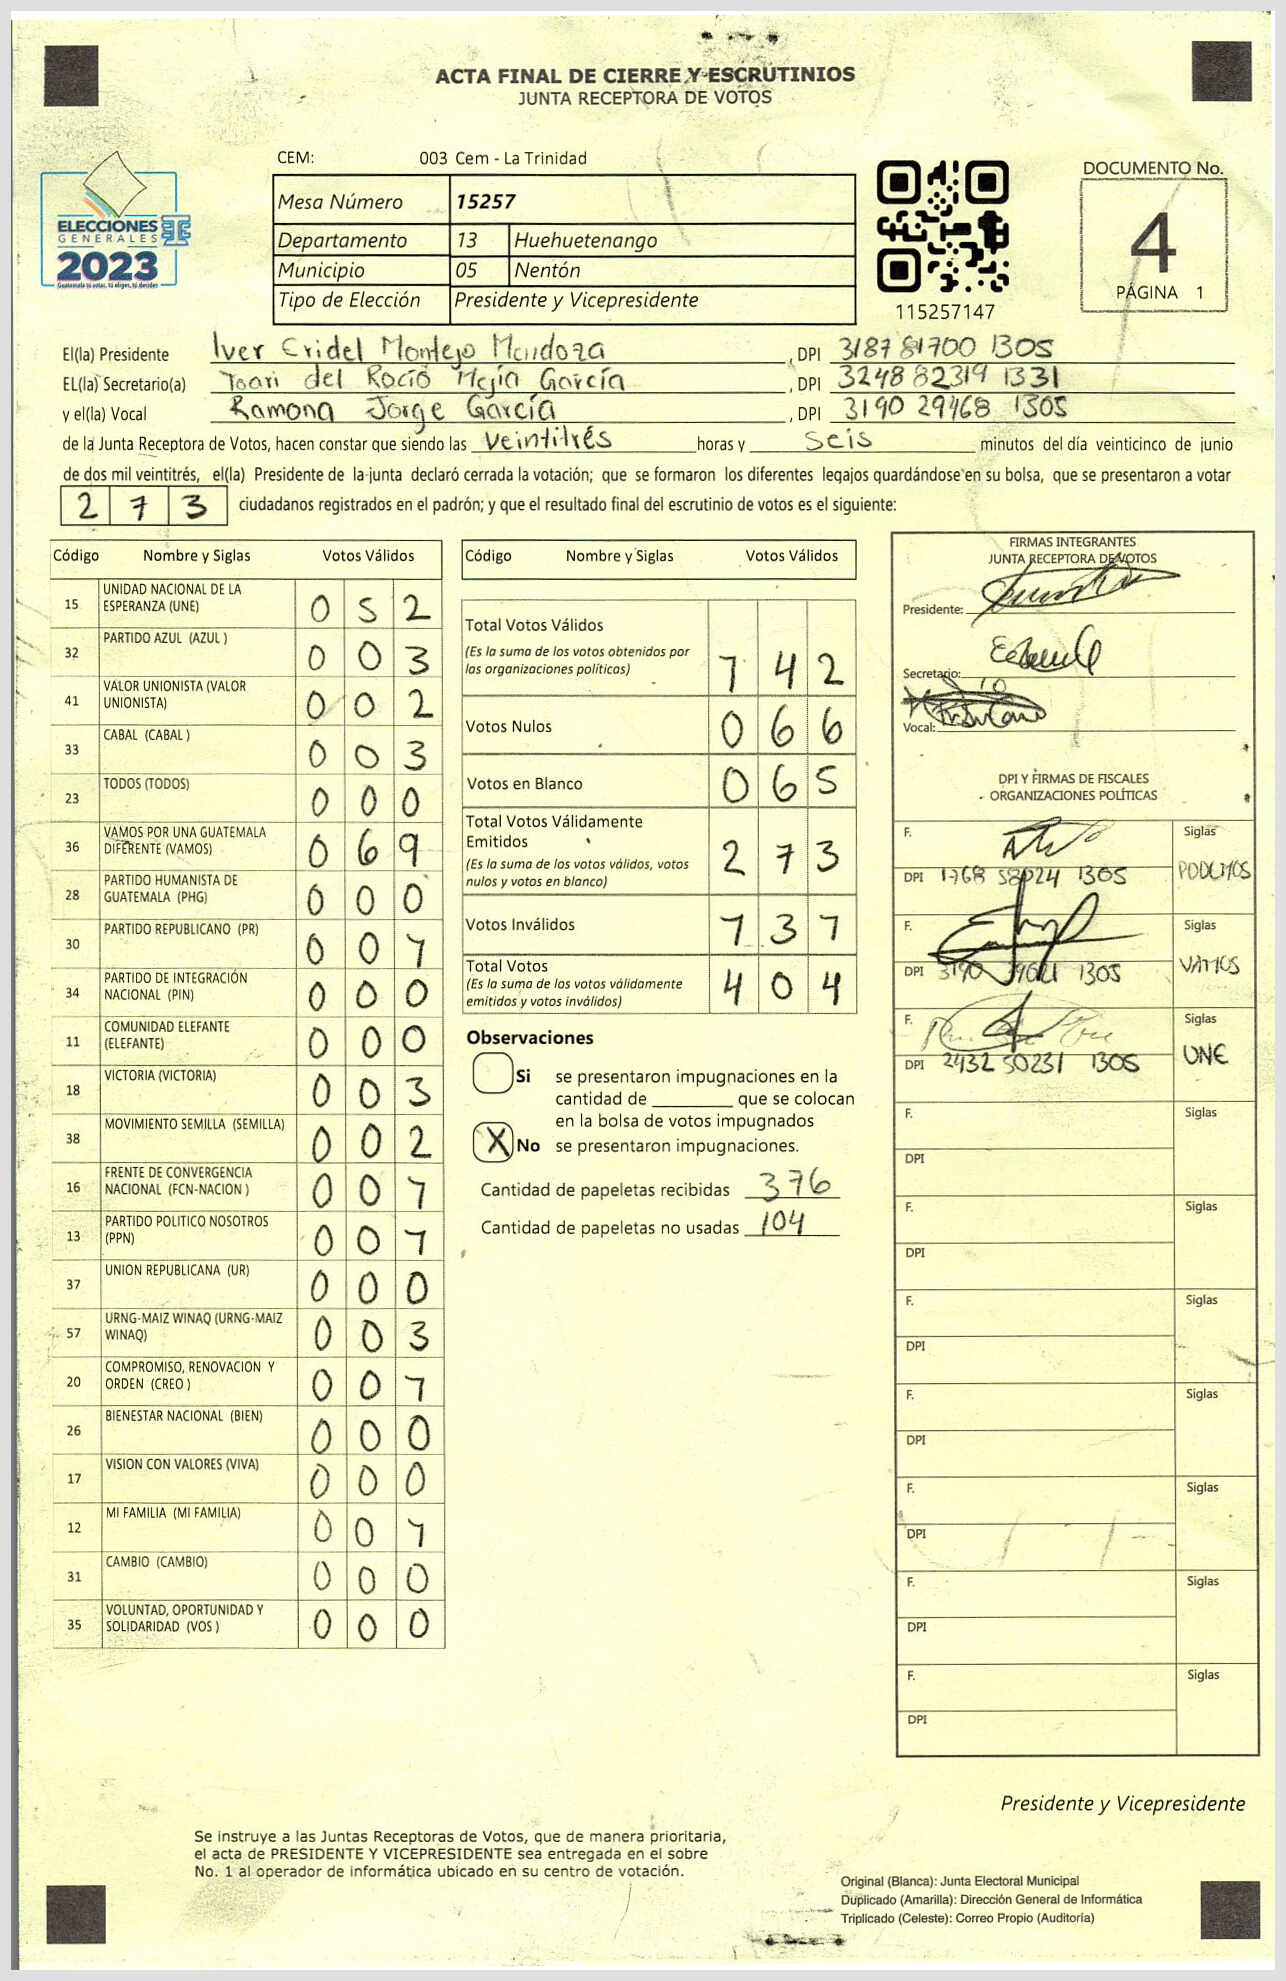 ACTA FINAL DE CIERRE Y ESCRUTINIOS
JUNTA RECEPTORA DE VOTOS
CEM: 003 Cem - La Trinidad
ELECCIONES
GENERALES
2023
Guatemala tú votas, tú eliges, tú decides
Mesa Número 15257
Departamento 13 Huehuetenango
Municipio 05 Nentón
Tipo de Elección Presidente y Vicepresidente
115257147
DOCUMENTO No.
4
PÁGINA 1
El(la) Presidente Iver Eridel Montejo Mendoza, DPI 3187 81700 1305
EL(la) Secretario(a) del Rocío Mejía García, DPI 3248 82319 1331
y el(la) Vocal Ramona Jorge García, DPI 3190 29468 1305
de la Junta Receptora de Votos, hacen constar que siendo las veintitrés horas y seis minutos del día veinticinco de junio
de dos mil veintitrés, el(la) Presidente de la junta declaró cerrada la votación; que se formaron los diferentes legajos guardándose en su bolsa, que se presentaron a votar
273 ciudadanos registrados en el padrón; y que el resultado final del escrutinio de votos es el siguiente:
Código Nombre y Siglas Votos Válidos
15 UNIDAD NACIONAL DE LA ESPERANZA (UNE) 0 5 2
32 PARTIDO AZUL (AZUL ) 0 0 3
41 VALOR UNIONISTA (VALOR UNIONISTA) 0 0 2
33 CABAL (CABAL ) 0 0 3
23 TODOS (TODOS) 0 0 0
36 VAMOS POR UNA GUATEMALA DIFERENTE (VAMOS) 0 6 9
28 PARTIDO HUMANISTA DE GUATEMALA (PHG) 0 0 0
30 PARTIDO REPUBLICANO (PR) 0 0 1
34 PARTIDO DE INTEGRACIÓN NACIONAL (PIN) 0 0 0
11 COMUNIDAD ELEFANTE (ELEFANTE) 0 0 0
18 VICTORIA (VICTORIA) 0 0 3
38 MOVIMIENTO SEMILLA (SEMILLA) 0 0 2
16 FRENTE DE CONVERGENCIA NACIONAL (FCN-NACION ) 0 0 1
13 PARTIDO POLITICO NOSOTROS (PPN) 0 0 1
37 UNION REPUBLICANA (UR) 0 0 0
57 URNG-MAIZ WINAQ (URNG-MAIZ WINAQ) 0 0 3
20 COMPROMISO, RENOVACION Y ORDEN (CREO ) 0 0 1
26 BIENESTAR NACIONAL (BIEN) 0 0 0
17 VISION CON VALORES (VIVA) 0 0 0
12 MI FAMILIA (MI FAMILIA) 0 0 1
31 CAMBIO (CAMBIO) 0 0 0
35 VOLUNTAD, OPORTUNIDAD Y SOLIDARIDAD (VOS ) 0 0 0
Código Nombre y Siglas Votos Válidos
Total Votos Válidos
(Es la suma de los votos obtenidos por
las organizaciones políticas) 1 4 2
Votos Nulos 0 6 6
Votos en Blanco 0 6 5
Total Votos Válidamente
Emitidos
(Es la suma de los votos válidos, votos
nulos y votos en blanco) 2 7 3
Votos Inválidos 1 3 1
Total Votos
(Es la suma de los votos válidamente
emitidos y votos inválidos) 4 0 4
Observaciones
Si se presentaron impugnaciones en la
cantidad de ________ que se colocan
en la bolsa de votos impugnados
X No se presentaron impugnaciones.
Cantidad de papeletas recibidas 376
Cantidad de papeletas no usadas 104
FIRMAS INTEGRANTES
JUNTA RECEPTORA DE VOTOS
Presidente:
Secretario:
Vocal:
DPI Y FIRMAS DE FISCALES
ORGANIZACIONES POLÍTICAS
F. Siglas
DPI 1768 58024 1305 PODEMOS
F. Siglas
DPI 3190 39021 1305 VAMOS
F. Siglas
DPI 2432 50231 1305 UNE
F. Siglas
DPI
F. Siglas
DPI
F. Siglas
DPI
F. Siglas
DPI
F. Siglas
DPI
F. Siglas
DPI
F. Siglas
DPI
Presidente y Vicepresidente
Se instruye a las Juntas Receptoras de Votos, que de manera prioritaria,
el acta de PRESIDENTE Y VICEPRESIDENTE sea entregada en el sobre
No. 1 al operador de informática ubicado en su centro de votación.
Original (Blanca): Junta Electoral Municipal
Duplicado (Amarilla): Dirección General de Informática
Triplicado (Celeste): Correo Propio (Auditoría)